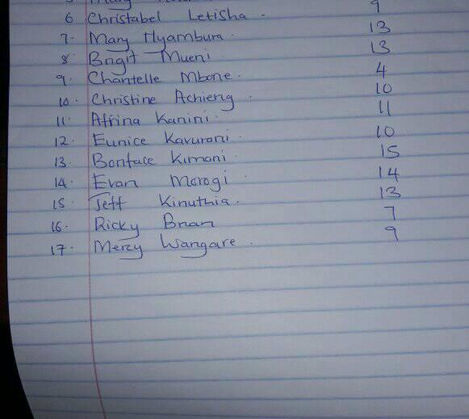 6 Christabel Letisha . 9
7. Mary Nyambura . 13
8 Brigit Mueni 13
9. Chantelle Mbone . 4
10. Christine Achieng . 10
11. Afrina Kanini . 11
12. Eunice Kavuroni . 10
13. Boniface Kimani . 15
14. Evan Moragi . 14
15 Jeff Kinuthia . 13
16. Ricky Brian 7
17. Mercy Wangare . 9